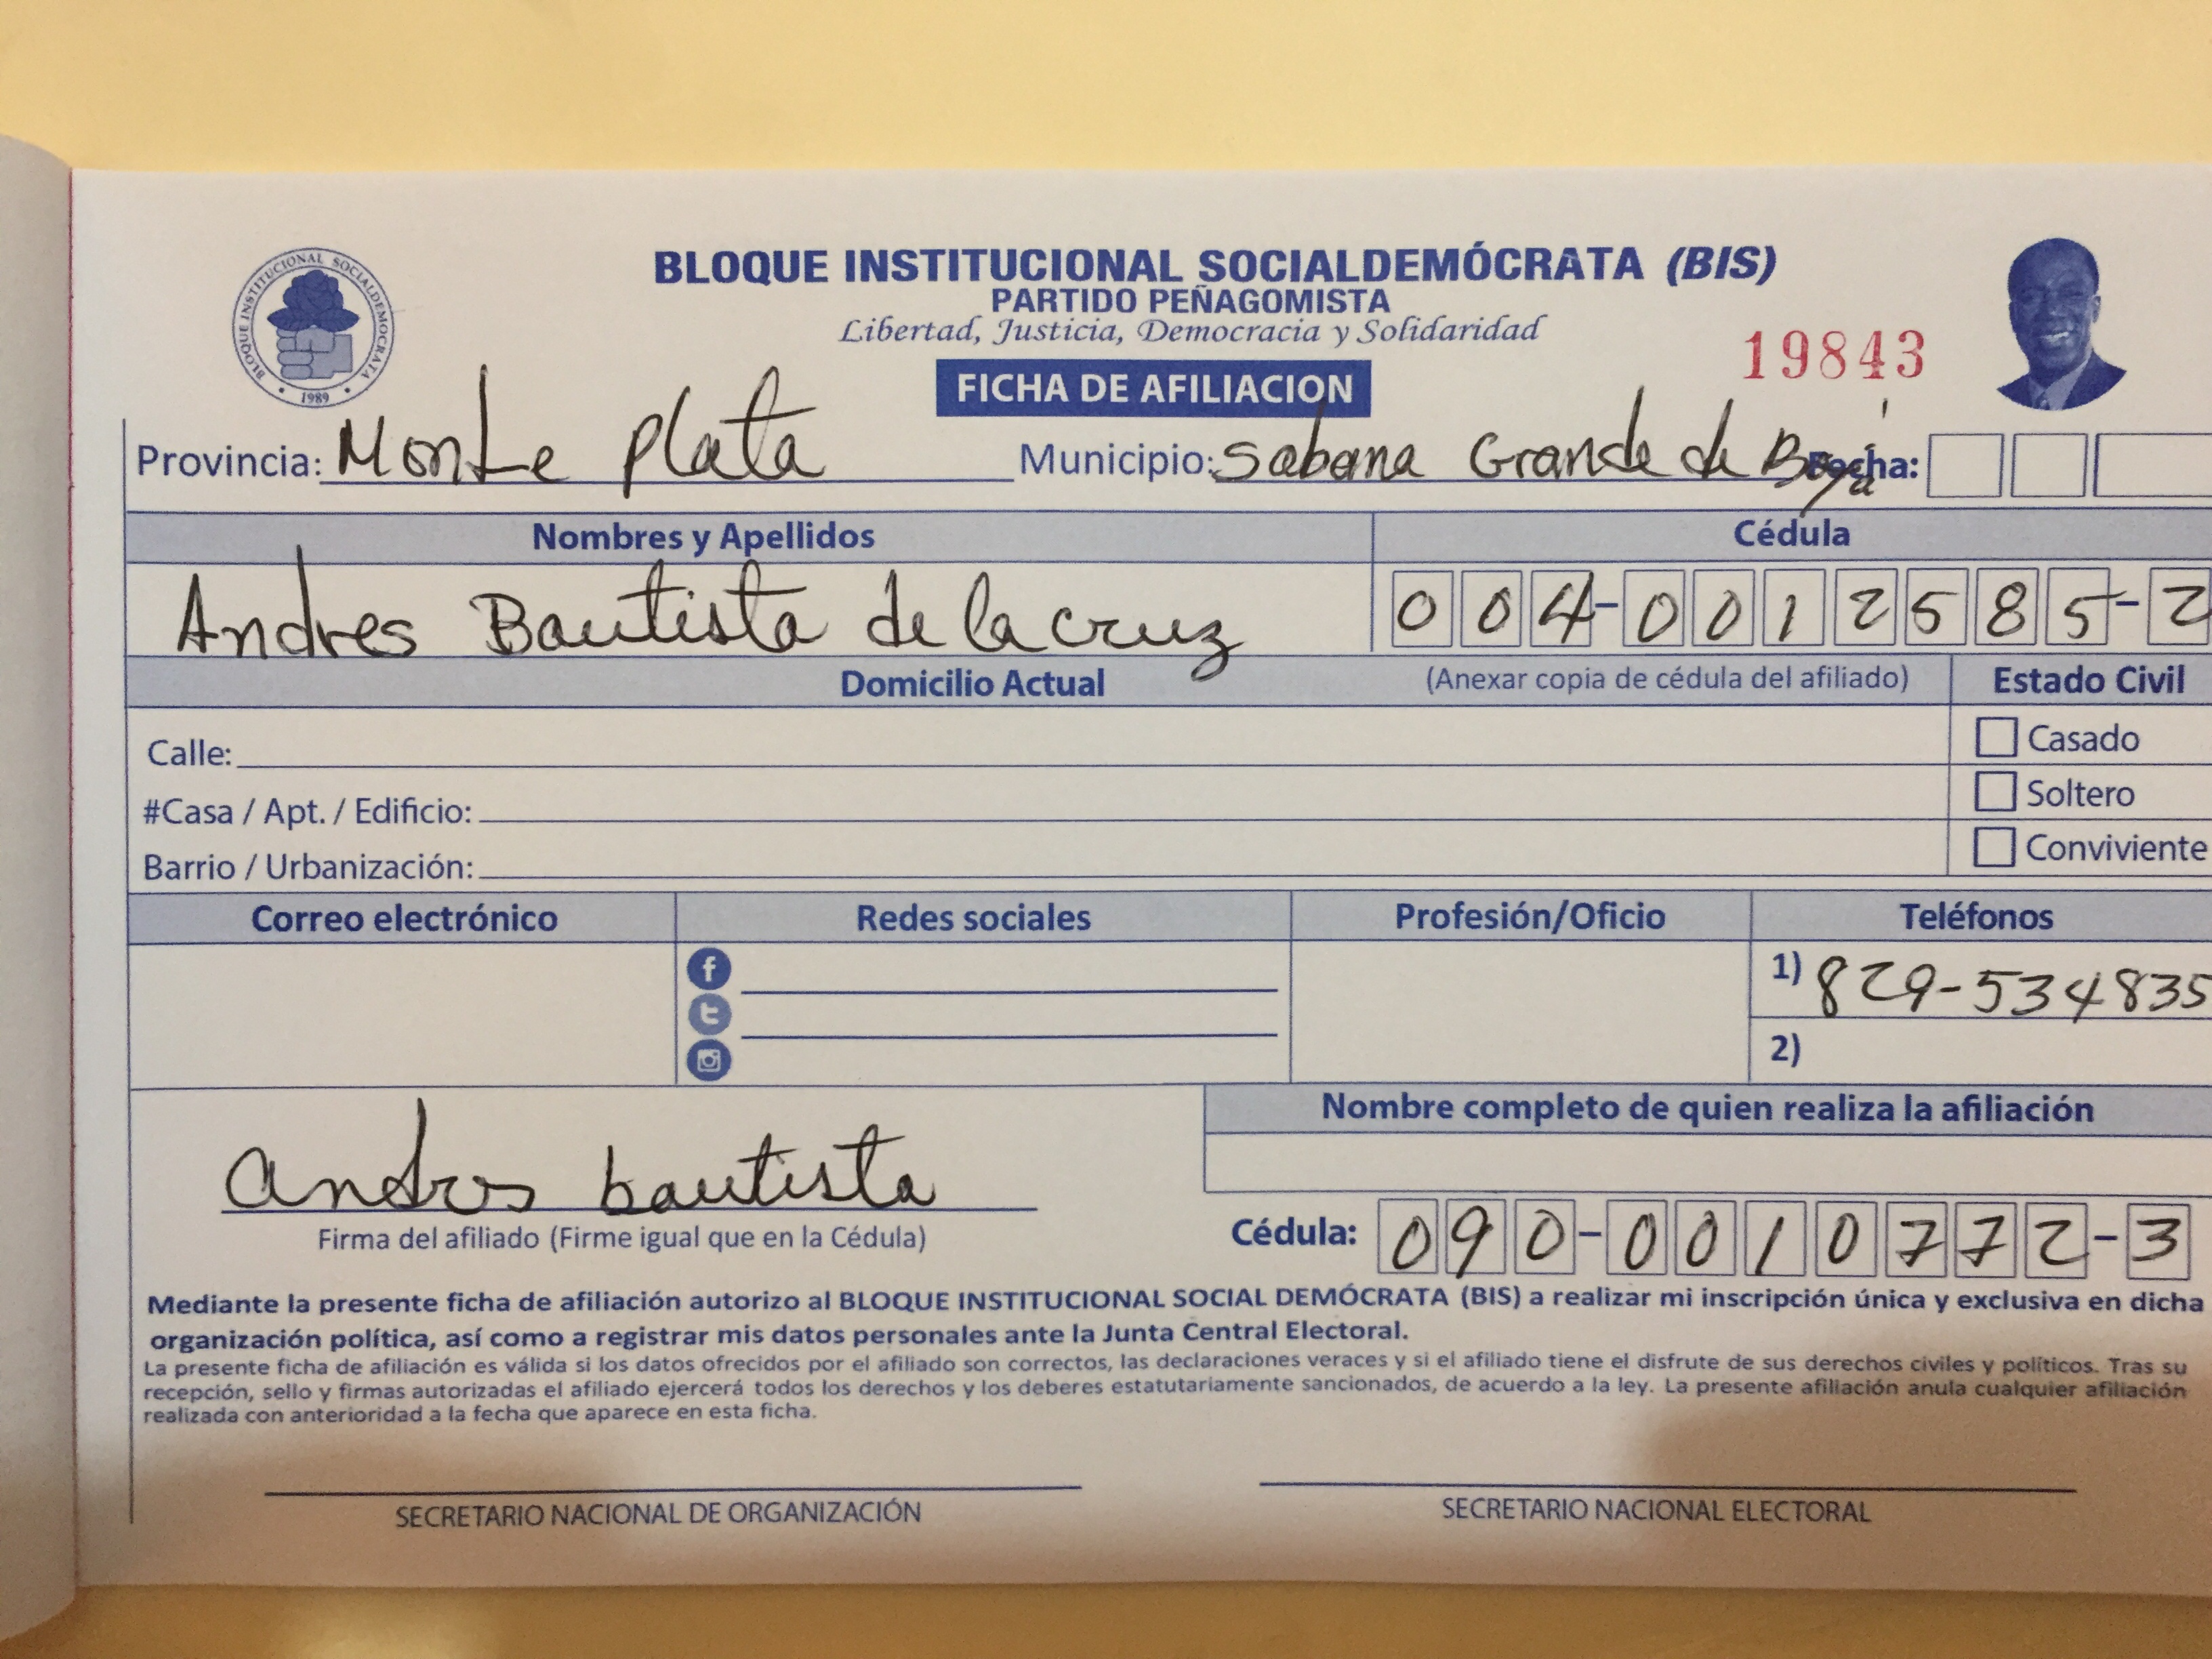 BLOQUE INSTITUCIONAL SOCIALDEMÓCRATA (BIS)
PARTIDO PEÑAGOMISTA
Libertad, Justicia, Democracia y Solidaridad
BLOQUE INSTITUCIONAL SOCIALDEMOCRATA
1989
19843
FICHA DE AFILIACION
Provincia: Monte Plata Municipio: Sabana Grande de Boyá Fecha:
Nombres y Apellidos Cédula
Andres Bautista de la cruz 004-0012585-2
Domicilio Actual (Anexar copia de cédula del afiliado) Estado Civil
Calle: Casado
#Casa / Apt. / Edificio: Soltero
Barrio / Urbanización: Conviviente
Correo electrónico Redes sociales Profesión/Oficio Teléfonos
1) 829-534835
2)
Nombre completo de quien realiza la afiliación
andres bautista
Firma del afiliado (Firme igual que en la Cédula) Cédula: 090-0010772-3
Mediante la presente ficha de afiliación autorizo al BLOQUE INSTITUCIONAL SOCIAL DEMÓCRATA (BIS) a realizar mi inscripción única y exclusiva en dicha
organización política, así como a registrar mis datos personales ante la Junta Central Electoral.
La presente ficha de afiliación es válida si los datos ofrecidos por el afiliado son correctos, las declaraciones veraces y si el afiliado tiene el disfrute de sus derechos civiles y políticos. Tras su
recepción, sello y firmas autorizadas el afiliado ejercerá todos los derechos y los deberes estatutariamente sancionados, de acuerdo a la ley. La presente afiliación anula cualquier afiliación
realizada con anterioridad a la fecha que aparece en esta ficha.
SECRETARIO NACIONAL DE ORGANIZACIÓN SECRETARIO NACIONAL ELECTORAL